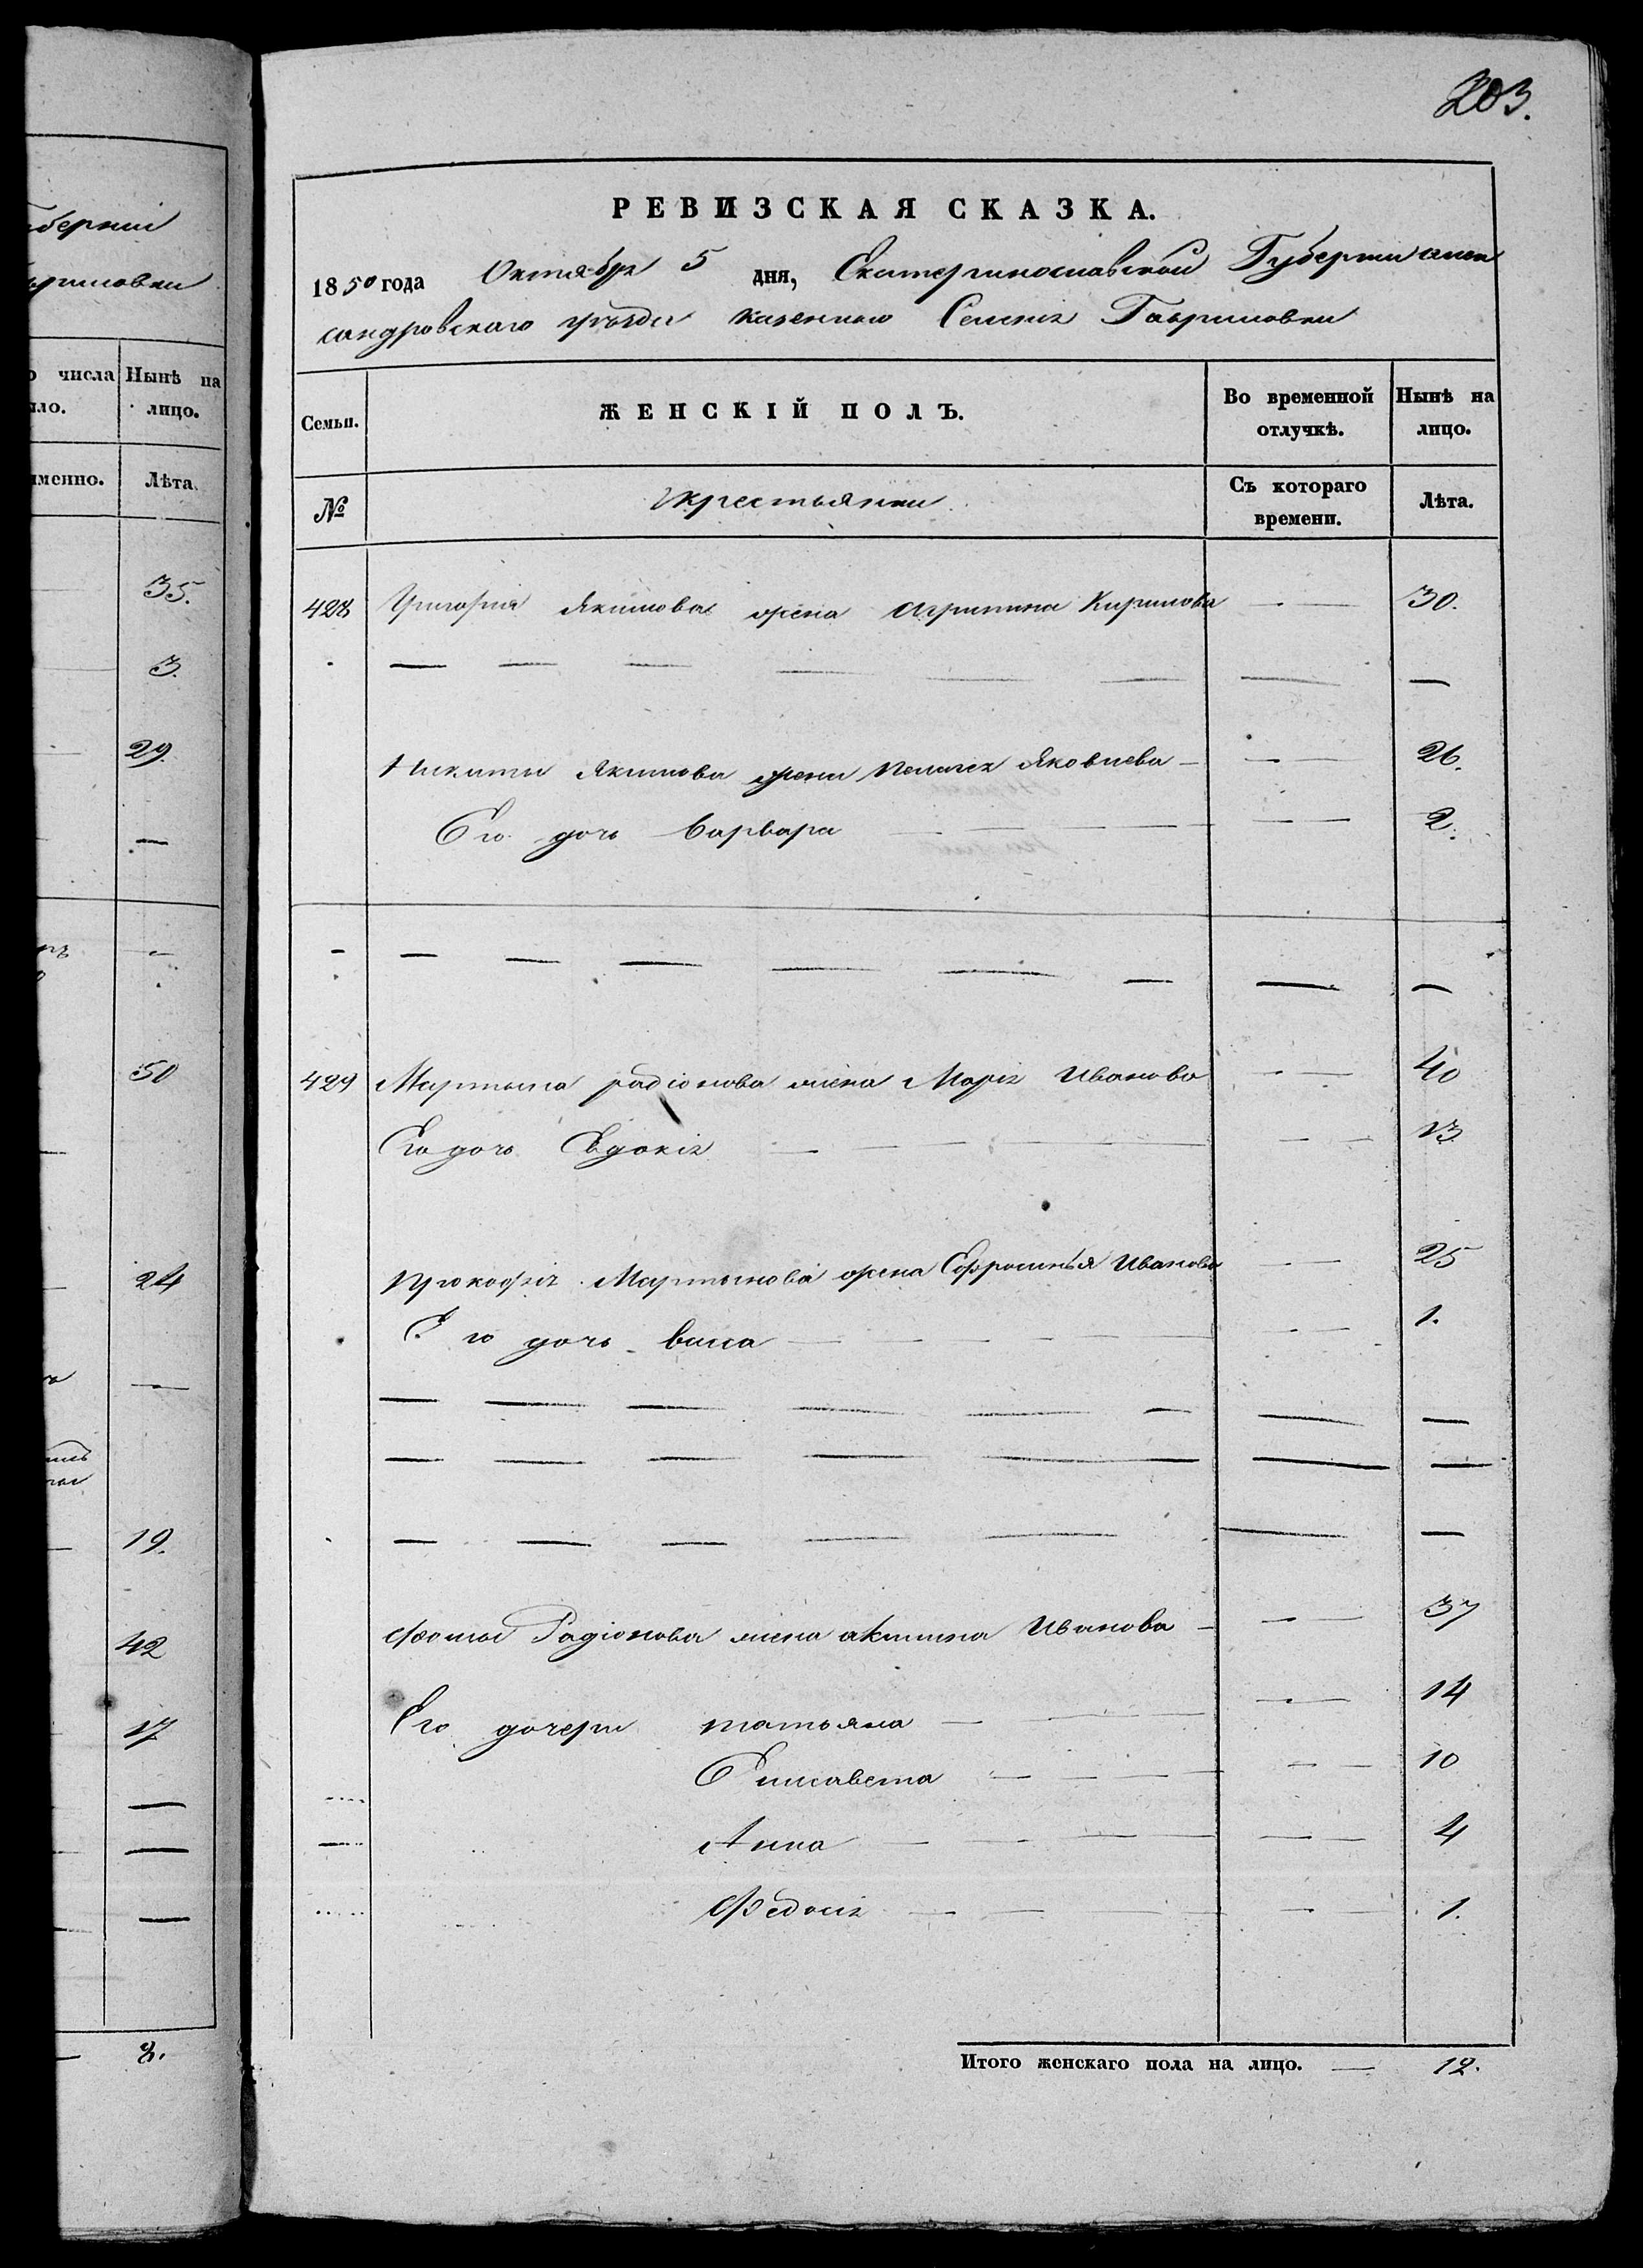 203.
РЕВИЗСКАЯ СКАЗКА.
1850 года Октября 5 дня, Екатеринославской Губернии алек
сандровскаго уѣзда казеннаго Селенія Гавриловки
Семьи.
ЖЕНСКІЙ ПОЛЪ.
Во временной отлучкѣ.
Нынѣ на лицо.
№
крестьянки
Съ котораго времени.
Лѣта.
428 Григорія Якимова жена Агрипина Кирилова — — 30.
Никиты Якимова жена Пелагея Яковлева — — — 26.
Его дочь Варвара — — — — — 2.
429 Мартына радіонова жена Марія Иванова — — 40
Его дочь Евдокія — — — — — 13
Прокофія Мартынова жена Ефросинья Иванова — — 25
Его дочь васса — — — — — — 1.
Фомы Радіонова жена акилина Иванова — — — 37
Его дочери татьяна — — — — — 14
Елисавета — — — — — — 10
Анна — — — — — — 4
Федосія — — — — — — 1.
Итого женскаго пола на лицо. — 12.
губерніи
числа
Нынѣ на лицо.
именно.
Лѣта
35.
3.
29.
50
24
19.
42
17
8.